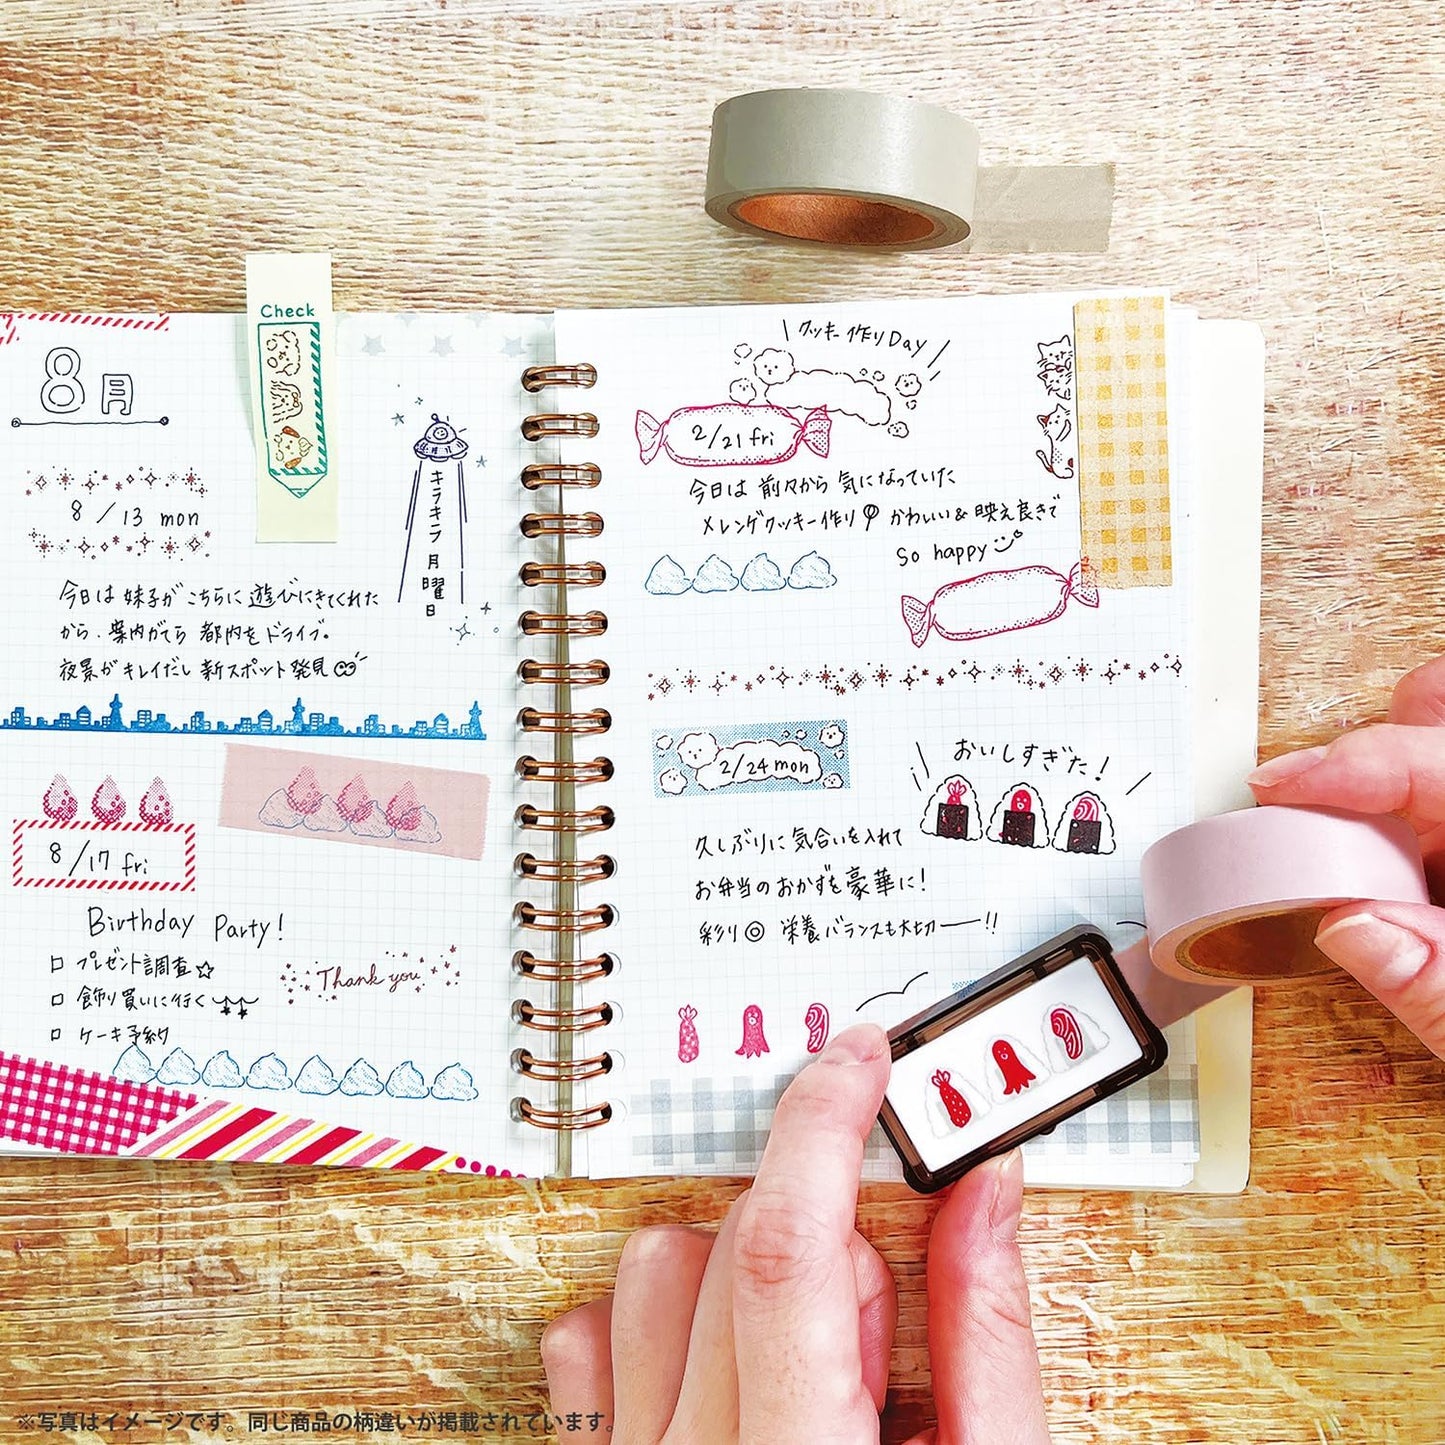 Check
8月
8/13 mon
キラキラ月曜日
今日は妹子がこちらに遊びにきてくれた
から、案内がてら都内をドライブ。
夜景がキレイだし新スポット発見
8/17 fri
Birthday Party!
プレゼント調査☆
飾り買いに行く
ケーキ予約
Thank you
クッキー作りDay
2/21 fri
今日は前々から気になっていた
メレンゲクッキー作り かわいい&映え良きで
So happy
2/24 mon
おいしすぎた!
久しぶりに気合いを入れて
お弁当のおかずを豪華に!
彩り◎ 栄養バランスも大切ー!!
※写真はイメージです。同じ商品の柄違いが掲載されています。